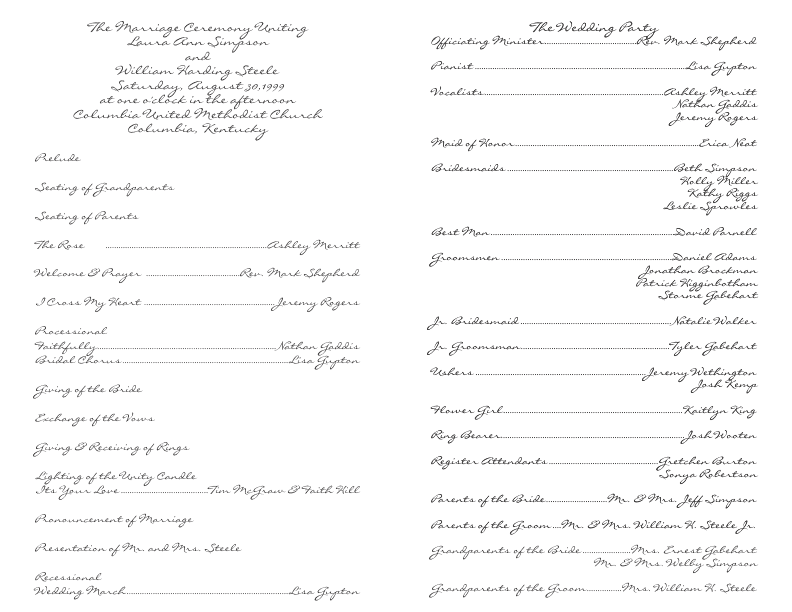 The Marriage Ceremony Uniting
Laura Ann Simpson
and
William Harding Steele
Saturday, August 30, 1999
at one o'clock in the afternoon
Columbia United Methodist Church
Columbia, Kentucky
Prelude
Seating of Grandparents
Seating of Parents
The Rose ........ Ashley Merritt
Welcome & Prayer ........ Rev. Mark Shepherd
I Cross My Heart ........ Jeremy Rogers
Processional
Faithfully ........ Nathan Gaddis
Bridal Chorus ........ Lisa Gupton
Giving of the Bride
Exchange of the Vows
Giving & Receiving of Rings
Lighting of the Unity Candle
It's Your Love ........ Tim McGraw & Faith Hill
Pronouncement of Marriage
Presentation of Mr. and Mrs. Steele
Recessional
Wedding March ........ Lisa Gupton
The Wedding Party
Officiating Minister ........ Rev. Mark Shepherd
Pianist ........ Lisa Gupton
Vocalists ........ Ashley Merritt
Nathan Gaddis
Jeremy Rogers
Maid of Honor ........ Erica Neat
Bridesmaids ........ Beth Simpson
Holly Miller
Kathy Riggs
Leslie Sprowles
Best Man ........ David Parnell
Groomsmen ........ Daniel Adams
Jonathan Brockman
Patrick Higginbotham
Storme Gabehart
Jr. Bridesmaid ........ Natalie Walker
Jr. Groomsman ........ Tyler Gabehart
Ushers ........ Jeremy Wethington
Josh Kemp
Flower Girl ........ Kaitlyn King
Ring Bearer ........ Josh Wooten
Register Attendants ........ Gretchen Burton
Sonya Robertson
Parents of the Bride ........ Mr. & Mrs. Jeff Simpson
Parents of the Groom ... Mr. & Mrs. William H. Steele Jr.
Grandparents of the Bride ........ Mrs. Ernest Gabehart
Mr. & Mrs. Welby Simpson
Grandparents of the Groom ........ Mrs. William H. Steele